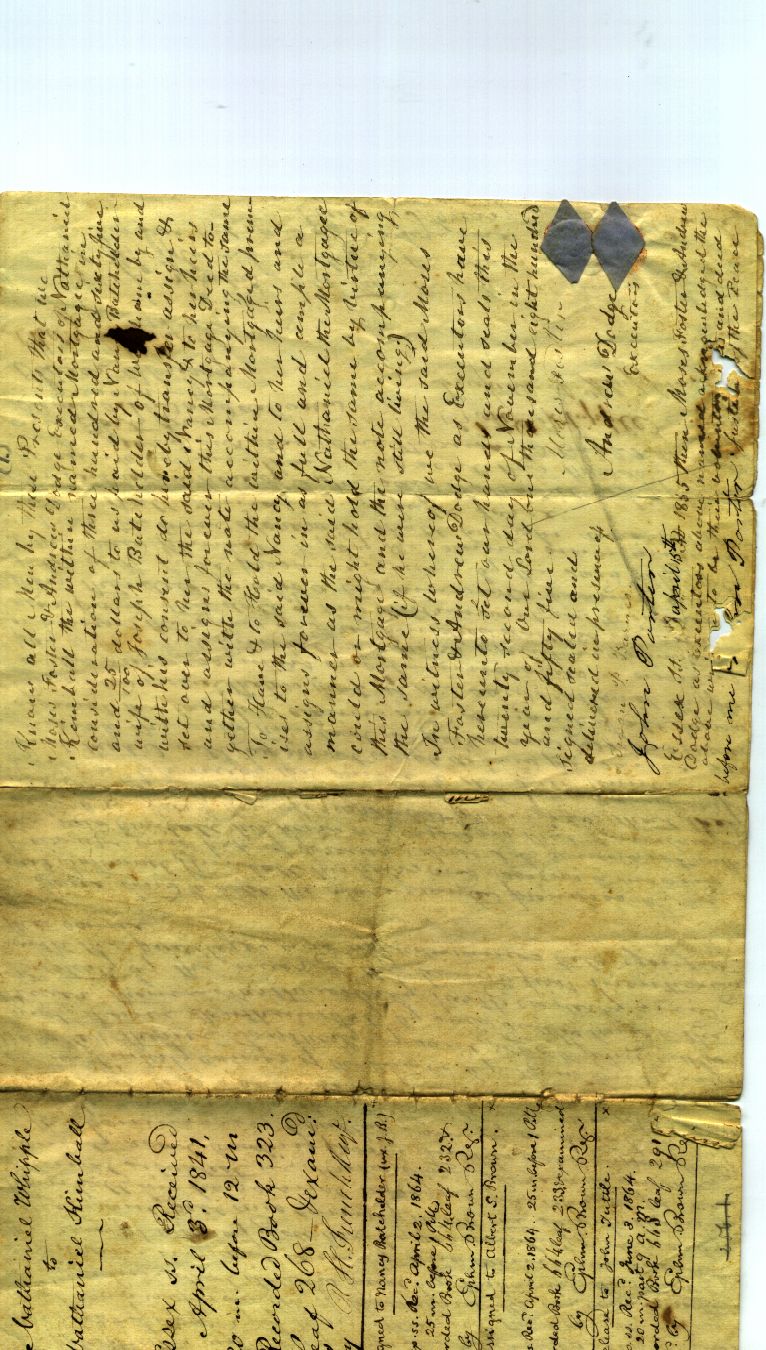 Know all Men by these Presents that we
Moses Foster & Andrew Dodge Executors of Nathaniel
Kimball the within named Mortgagee in
consideration of three hundred and sixty five
and 25/100 dollars to us paid by Nancy Batchelder
wife of Joseph Batchelder of by and
with his consent do hereby transfer assign &
set over to her the said Nancy & to her heirs
and assigns forever this Mortgage Deed to-
gether with the note accompanying the same
To Have & to Hold the within Mortgaged prem
ises to the said Nancy and to her heirs and
assigns forever in as full and ample a
manner as the said Nathaniel the Mortgagee
could or might hold the same by virtue of
this Mortgage and the note accompanying
the same (if he were still living)
In witness whereof we the said Moses
Foster & Andrew Dodge as Executors have
hereunto set our hands and seals this
twenty second day of November in the
year of Our Lord one thousand eight hundred
and fifty five
Signed sealed and
delivered in presence of
Moses Foster
Andrew Dodge
Executors
John Porter
Essex ss. April 1855 then Moses Foster & Andrew
Dodge as executors above named acknowledged the
above to be their voluntary and deed
before me Porter Justice of the Peace
Nathaniel Whipple
to
Nathaniel Kimball
Essex ss. Received
April 3d. 1841.
m. before 12 M
Recorded Book 323.
Leaf 268 - Exam:
by R. H. French Regr.
signed to Nancy Batchelder (w. J.B.)
ss. Recd. April 2. 1864.
25 m. before 1 P.M.
Book 664 leaf 232 &
by Ephm Brown Regr.
assigned to Albert S. Brown. x
Recd. April 2. 1864. 25 m before 1 P.M.
Book 664 leaf 233 examined
by Ephm Brown Regr.
lease to John Tuttle. x
ss. Recd. June 3, 1864.
20 m. past 9 a.m.
Book 668 leaf 291
by Ephm Brown Regr.